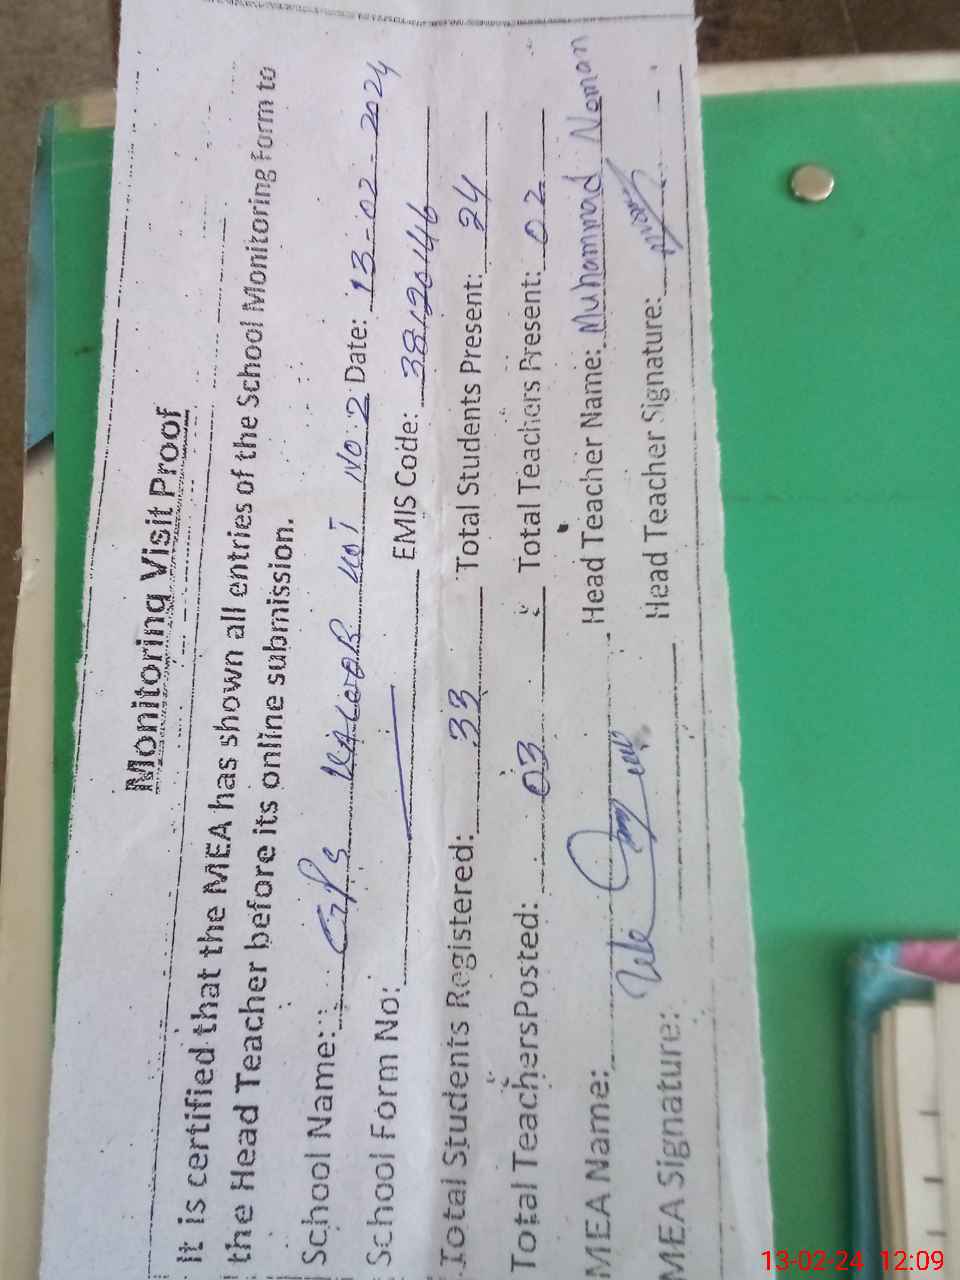 Monitoring Visit Proof
It is certified that the MEA has shown all entries of the School Monitoring Form to
the Head Teacher before its online submission.
School Name: GPS YAQOOB KOT NO. 2 Date: 13-02-2024
School Form No: EMIS Code: 38120446
Total Students Registered: 33 Total Students Present: 24
Total Teachers Posted: 03 Total Teachers Present: 02
MEA Name: Head Teacher Name: Muhammad Noman
MEA Signature: Head Teacher Signature:
13-02-24 12:09